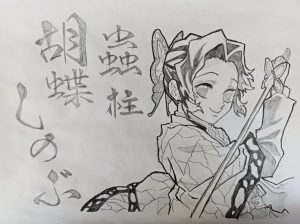 蟲柱
胡蝶
しのぶ